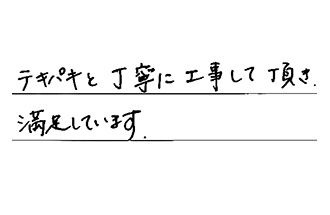 テキパキと丁寧に工事して頂き.
満足しています.